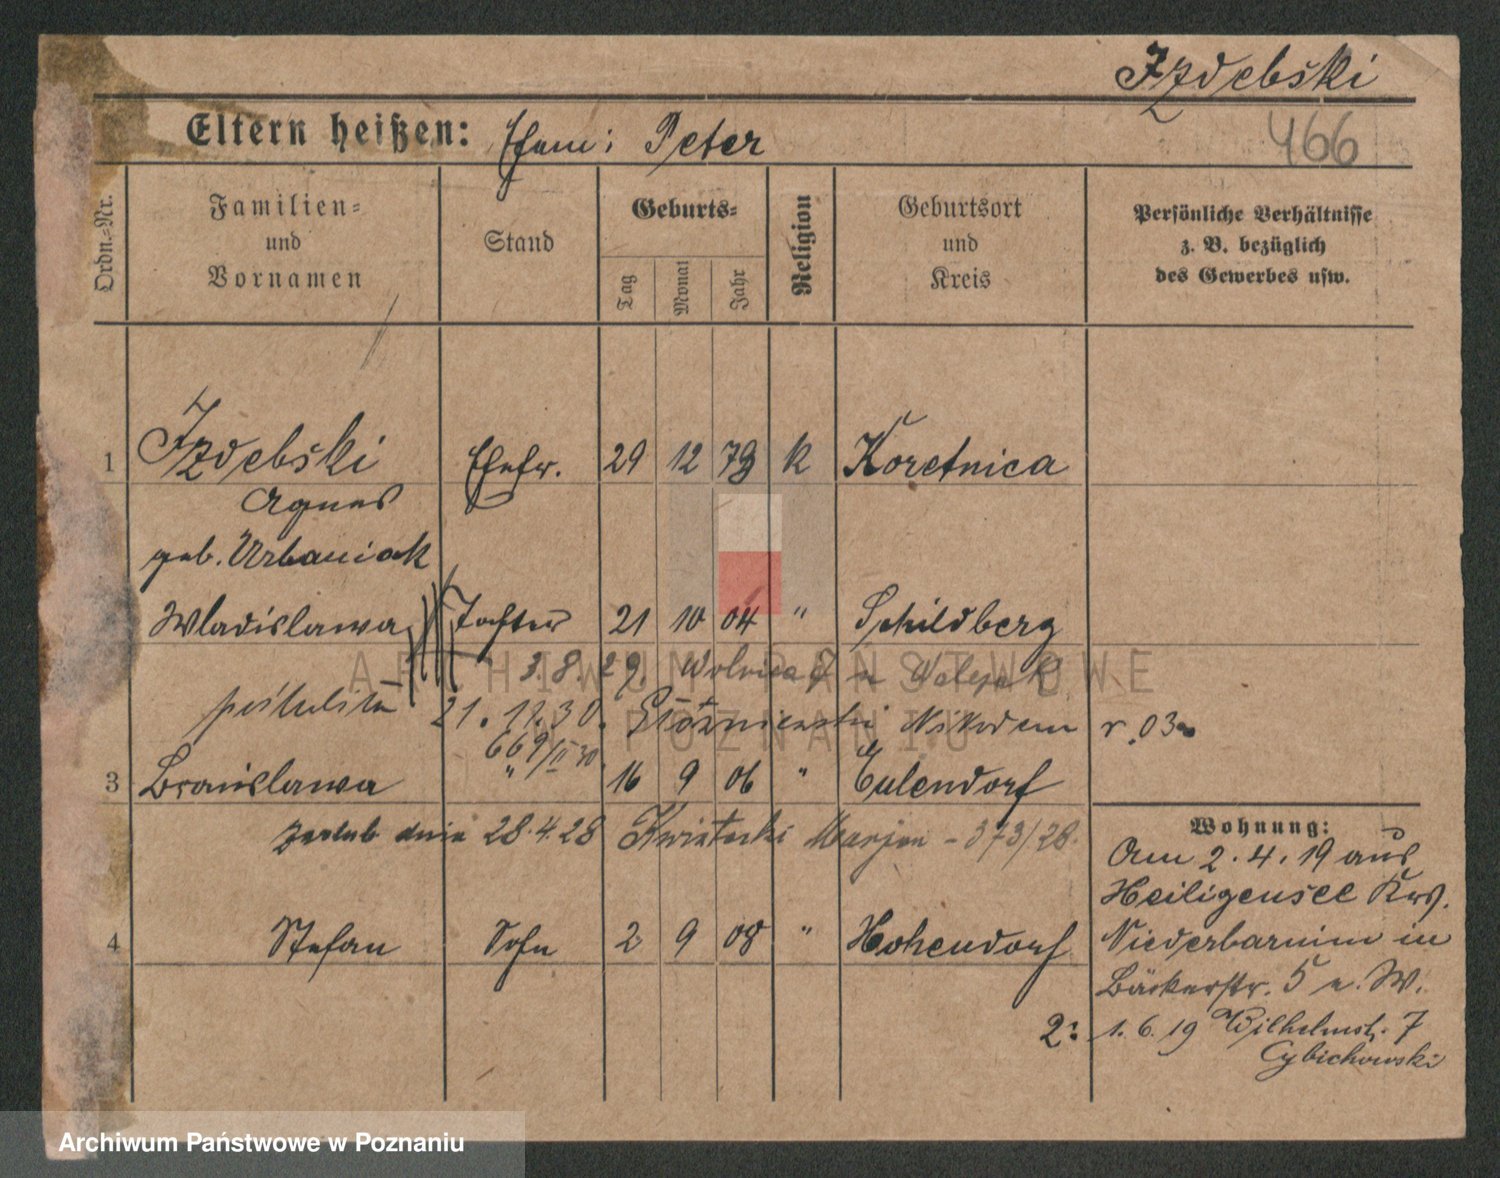 Izdebski
Eltern heißen: Ehem: Peter
466
Ordn.-Nr.
Familien-
und
Vornamen
Stand
Geburts-
Tag
Monat
Jahr
Religion
Geburtsort
und
Kreis
Persönliche Verhältnisse
z. B. bezüglich
des Gewerbes usw.
1 Izdebski Ehefr. 29 12 79 k Koretnica
Agnes
geb. Urbaniak
Wladislawa Tochter 21 10 04 " Schildberg
3.8.29. Wolnica 7
21.11.30. Nikodem r. 03
669/II 30
3 Bronislawa " 16 9 06 " Eulendorf
zaślub dnia 28.4.28 Kwiatecki Marjan - 373/28.
4 Stefan Sohn 2 9 08 " Hohendorf
Wohnung:
Am 2.4.19 aus
Heiligensee Krs.
Niederbarnim in
Bäckerstr. 5 n. W.
2: 1.6.19 Wilhelmstr. 7
Cybichowski
ARCHIWUM PAŃSTWOWE
W POZNANIU
Archiwum Państwowe w Poznaniu